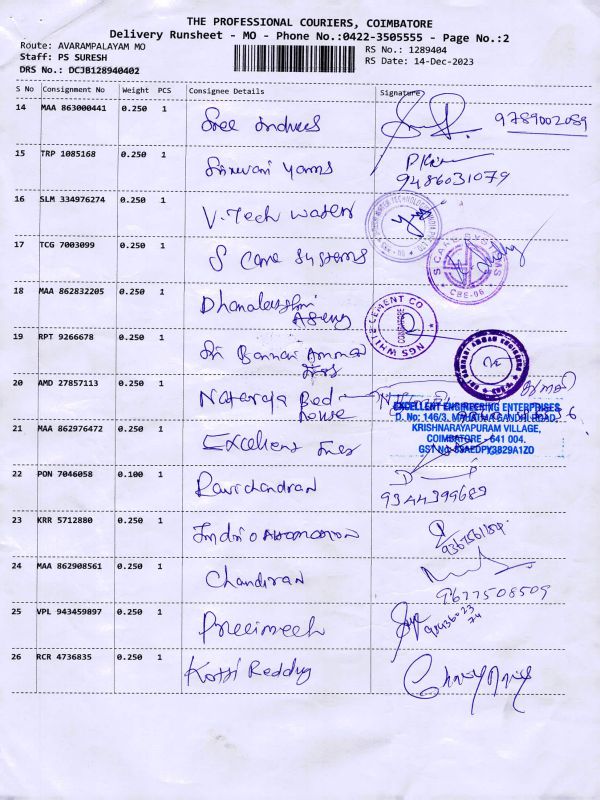 THE PROFESSIONAL COURIERS, COIMBATORE
Delivery Runsheet - MO - Phone No.:0422-3505555 - Page No.:2
Route: AVARAMPALAYAM MO
RS No.: 1289404
Staff: PS SURESH
RS Date: 14-Dec-2023
DRS No.: DCJB128940402
S No Consignment No Weight PCS Consignee Details Signature
14 MAA 863000441 0.250 1 Sree Indues 9789002089
15 TRP 1085168 0.250 1 Sriruvari yarns
9486031079
16 SLM 334976274 0.250 1 V.Tech water
17 TCG 7003099 0.250 1 S Care Systems
S CARE SYSTEMS
CBE-06
18 MAA 862832205 0.250 1 Dhanalakshmi
Agency
NGS WHITE CEMENT CO
COIMBATORE
19 RPT 9266678 0.250 1 Sri Bannari Amman
20 AMD 27857113 0.250 1 Nataraja Bed
house
EXCELLENT ENGINEERING ENTERPRISES
D. No: 146/3, MAHATMA GANDHI ROAD,
KRISHNARAYAPURAM VILLAGE,
COIMBATORE - 641 004.
GST No 33AEDPY3829A1Z0
21 MAA 862976472 0.250 1 Excellent
22 PON 7046058 0.100 1 Ravichandran
9344399683
23 KRR 5712880 0.250 1 Indrio Automation
24 MAA 862908561 0.250 1 Chandran
9677508509
25 VPL 943459897 0.250 1
26 RCR 4736835 0.250 1 Kotti Reddy